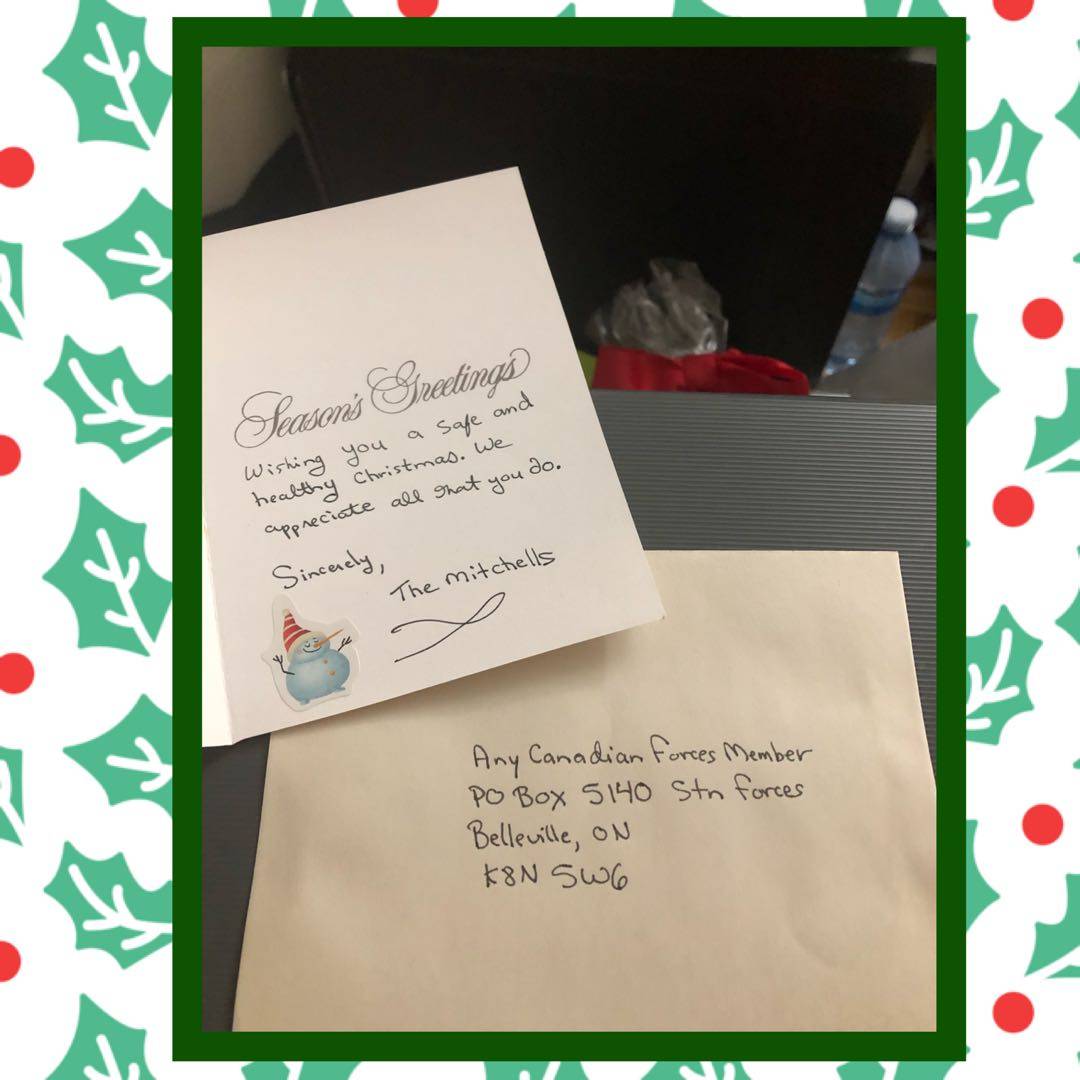 Season's Greetings
Wishing you a safe and
healthy Christmas. We
appreciate all that you do.
Sincerely,
The Mitchells
Any Canadian Forces Member
PO Box 5140 Stn Forces
Belleville, ON
K8N 5W6